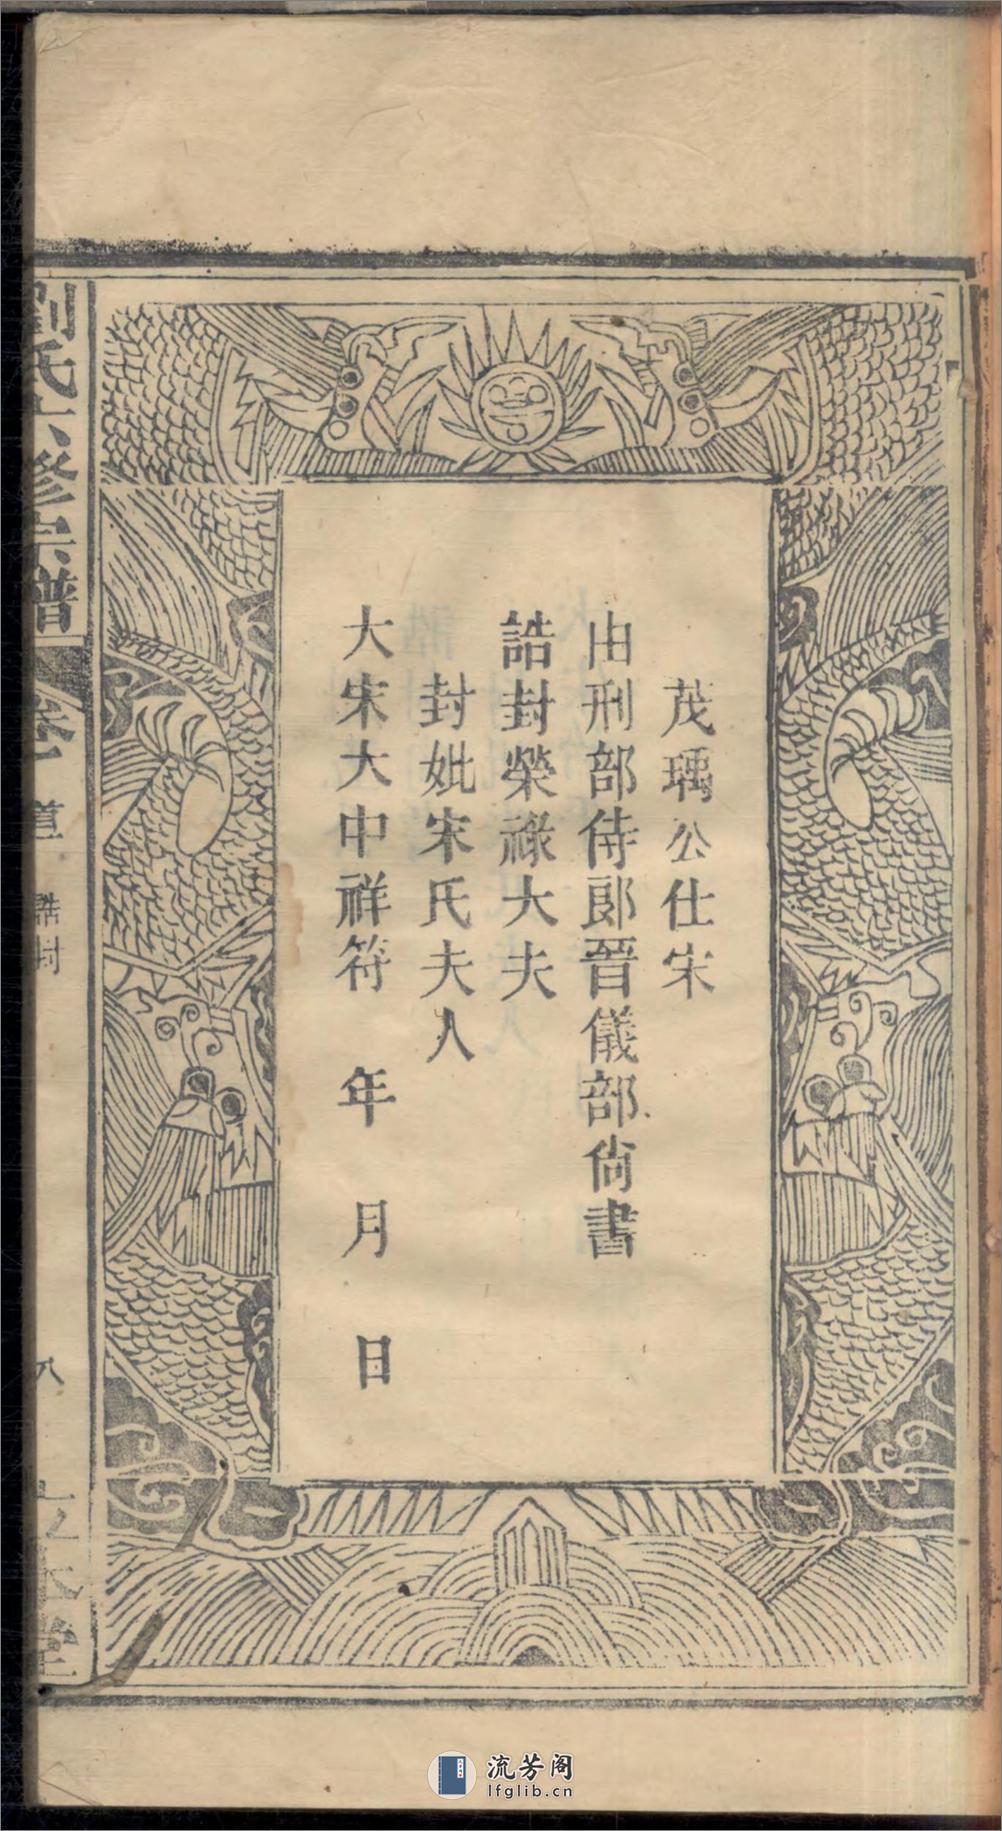 茂瑀公仕宋
由刑部侍郎晉儀部尙書
誥封榮祿大夫
封妣宋氏夫人
大宋大中祥符 年 月 日
劉氏六修宗譜
卷一
誥封
八
流芳阁
lfglib.cn